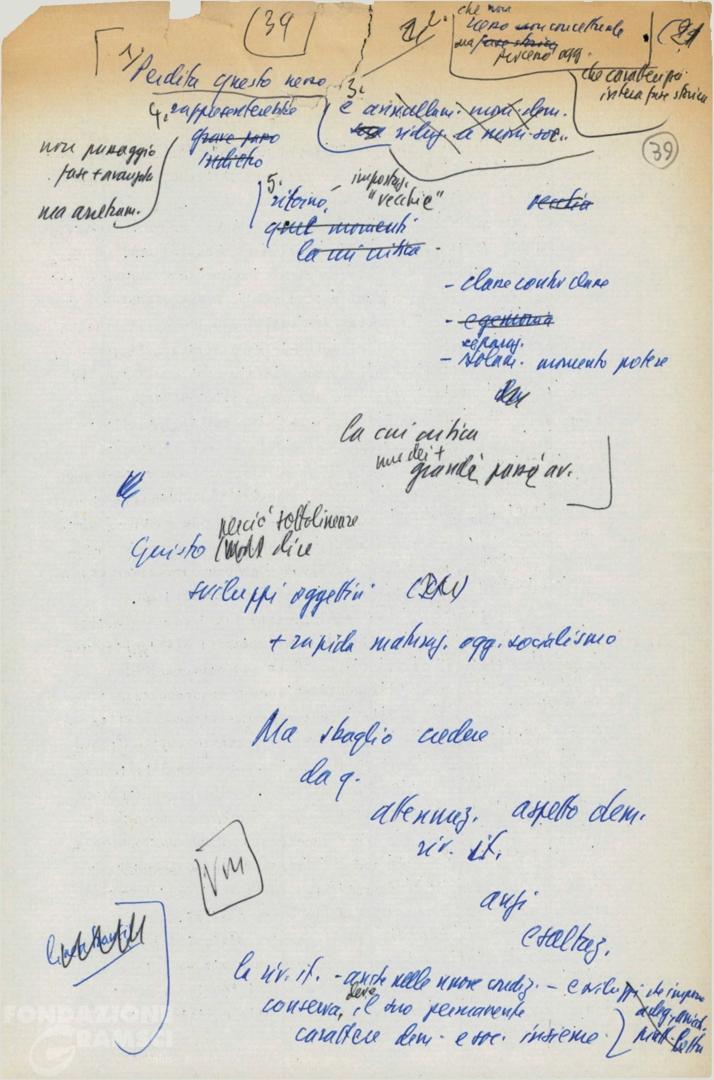 39
2.
che non
nesso non concettuale
ma fase storica
perseno ogg.
(21
che caratterizzi
intera fase storica
1) Perdita questo nesso
3.
è annullam. mom. dem.
riduz. a mom. soc.
39
4. rappresenterebbe
grave passo
indietro
non passaggio
fase + avanzata
ma arretram.
5. ritorno
impostaz.
"vecchie"
vecchia
quel momenti
la cui critica
- classe contro classe
- egemonia
separaz.
- solam. momento potere
la cui critica
uno dei +
grandi passi av.
Questo
perciò sottolineare
dire
sviluppi oggettivi
+ rapida maturaz. ogg. socialismo
Ma sbaglio credere
da q.
attenuaz. aspetto dem.
riv. it.
anzi
esaltaz.
VM
la riv. it. - anche nelle nuove condiz. - e sviluppi
conserva, deve il suo permanente
carattere dem. e soc. insieme.
FONDAZIONE
GRAMSCI